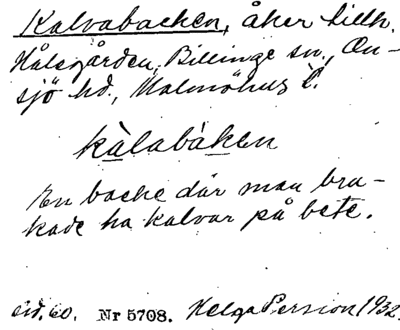 Kalvabacken, åker tillh.
Hålsgården, Billinge sn., On-
sjö hd., Malmöhus l.
kàlabàken
En backe där man bru-
kade ha kalvar på bete.
60. Nr 5708. Helga Persson 1932.